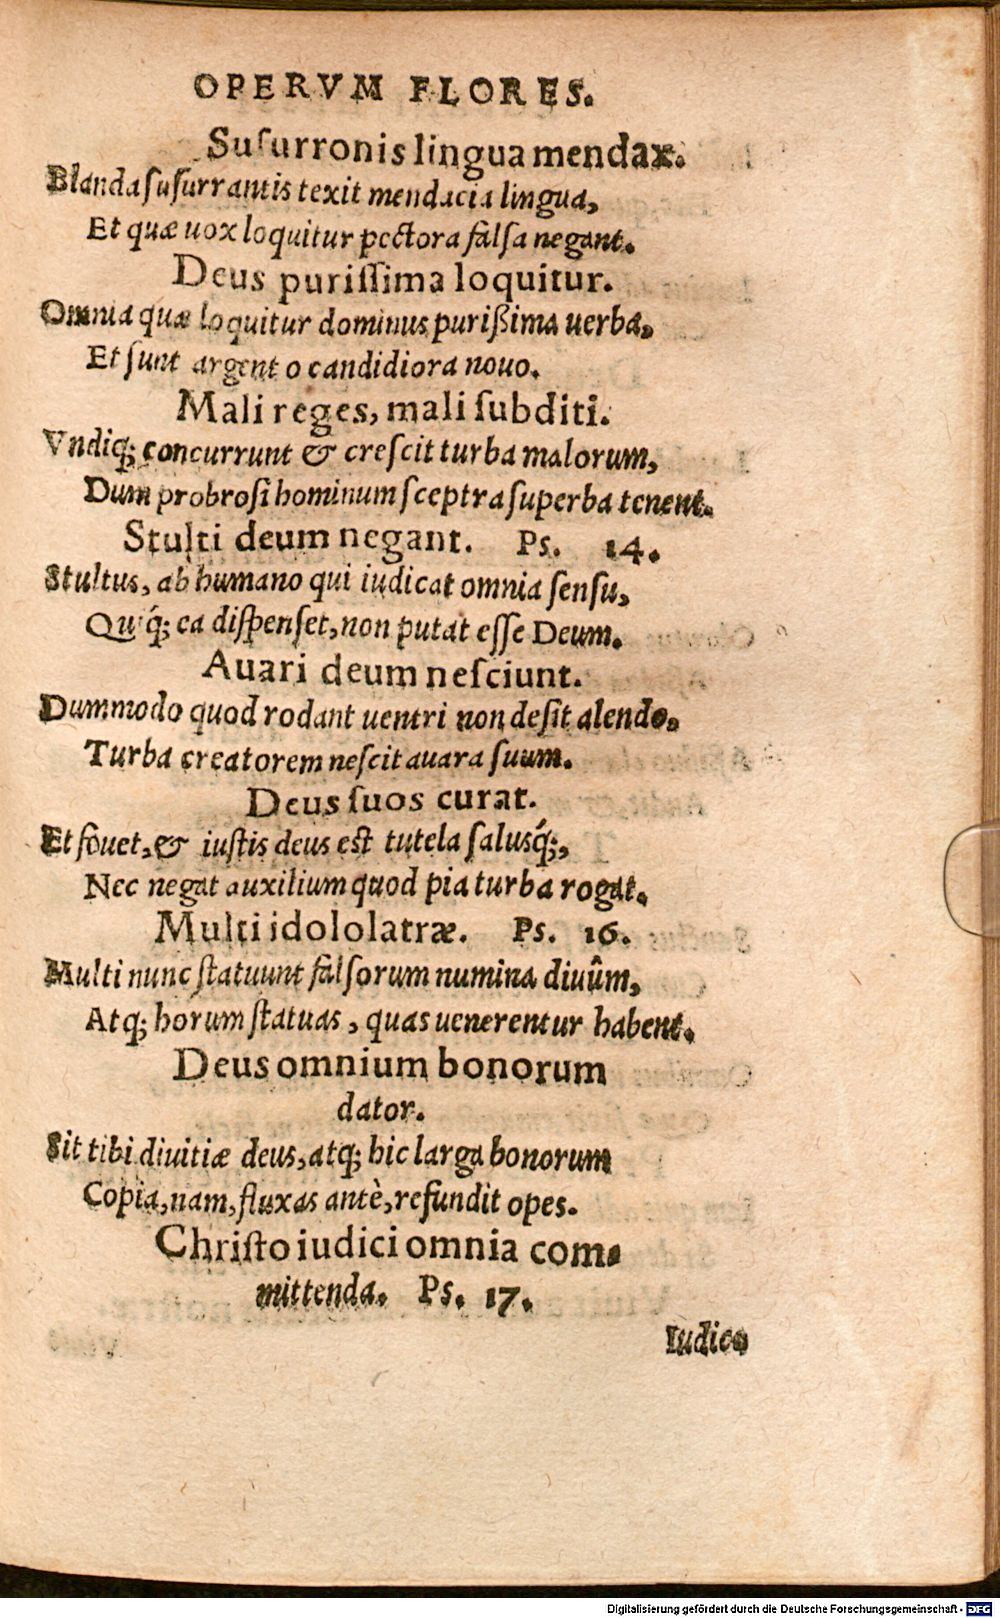 OPERVM FLORES.
Suſurronis lingua mendax.
Blanda ſuſurrantis texit mendacia lingua,
Et quæ uox loquitur pectora falſa negant.
Deus puriſſima loquitur.
Omnia quæ loquitur dominus purißima uerba,
Et ſunt argento candidiora nouo.
Mali reges, mali ſubditi.
Vndiq; concurrunt & creſcit turba malorum,
Dum probroſi hominum ſceptra ſuperba tenent.
Stulti deum negant. Ps. 14.
Stultus, ab humano qui iudicat omnia ſenſu,
Quiq́; ea diſpenſet, non putat eſſe Deum.
Auari deum neſciunt.
Dummodo quod rodant uentri non deſit alendo,
Turba creatorem neſcit auara ſuum.
Deus ſuos curat.
Et fouet, & iuſtis deus eſt tutela ſalusq́;,
Nec negat auxilium quod pia turba rogat.
Multi idololatræ. Ps. 16.
Multi nunc ſtatuunt falſorum numina diuûm,
Atq; horum ſtatuas, quas uenerentur habent.
Deus omnium bonorum
dator.
Sit tibi diuitiæ deus, atq; hic larga bonorum
Copia, nam, fluxas antè, refundit opes.
Chriſto iudici omnia com-
mittenda. Ps. 17.
Iudice
Digitalisierung gefördert durch die Deutsche Forschungsgemeinschaft - DFG